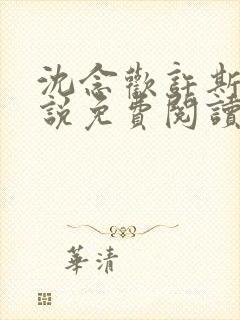 沈念歡許斯
說免費閱讀
華清